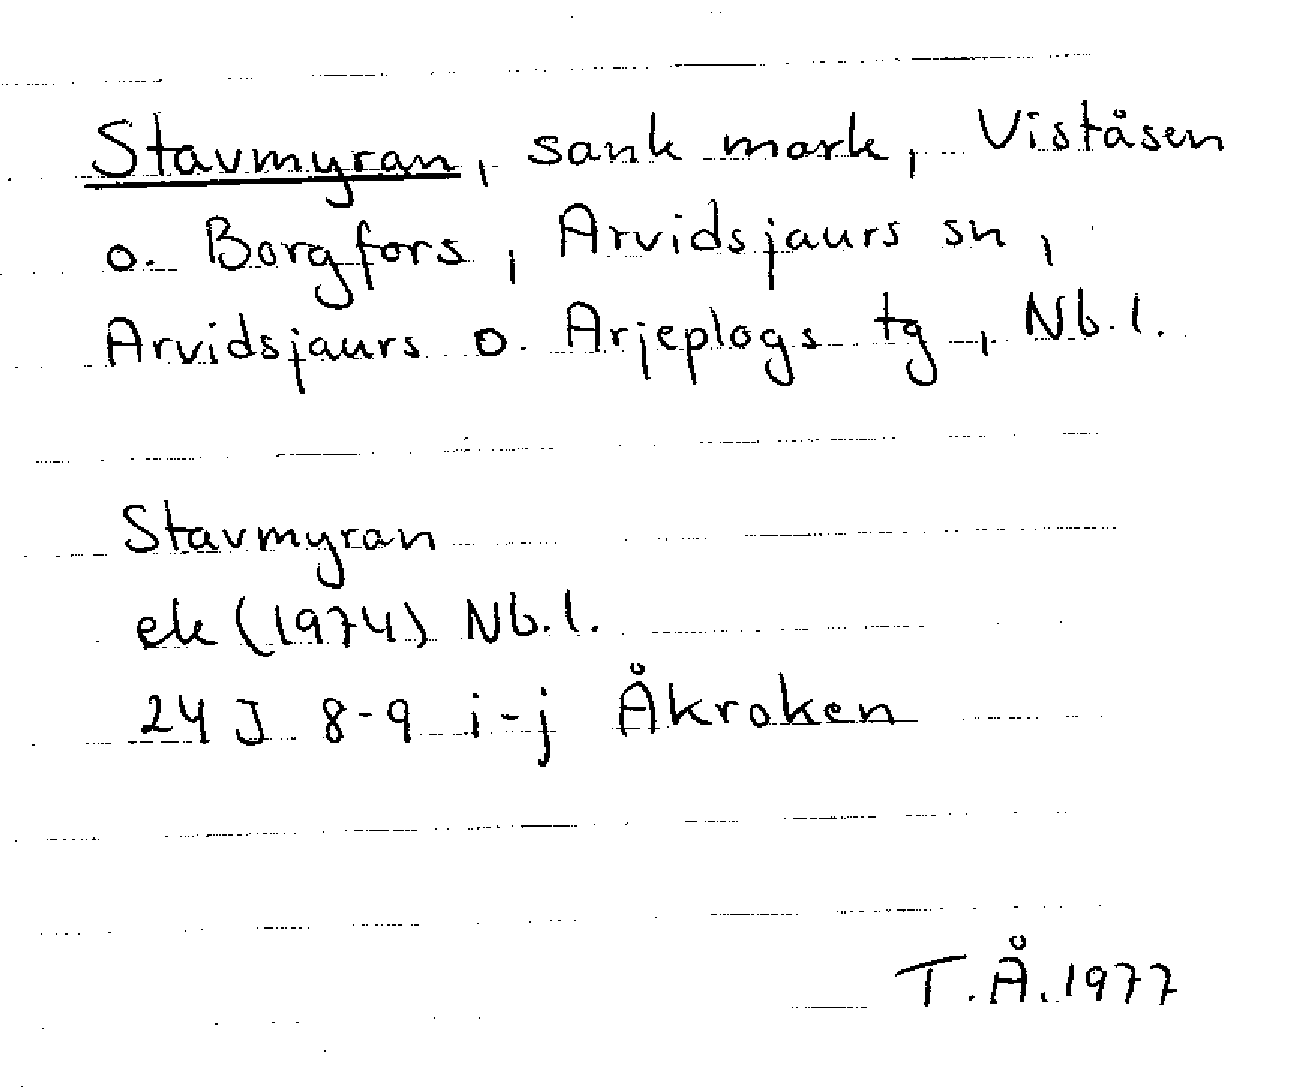 Stavmyran, sank mark, Viståsen
o. Borgfors, Arvidsjaurs sn,
Arvidsjaurs o. Arjeplogs tg, Nb.l.
Stavmyran
ek (1974) Nb.l.
24 J 8-9 i-j Åkroken
T.Å. 1977